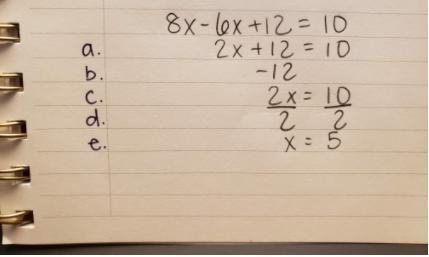 8x-6x+12=10
a. 2x+12=10
b. -12
c. 2x=10
d. 2 2
e. x=5